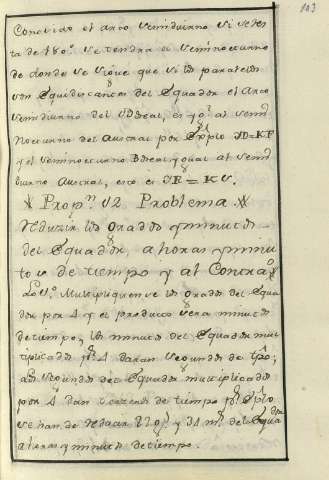 103
Conocido el arco semidiurno si se res
ta de 180º se tendra el seminocturno
de donde se sigue que si los paralelos
son Equidistantes del Equador el Arco
semidiurno del Boreal, es ygl. al semi
Nocturno del Austral por Explo
y el seminocturno Boreal ygual al semi
diurno Austral, esto es
Propn. 12 Problema
Reducir los grados y minutos
del Equador, a horas y minu
tos de tiempo y al Contrao
Multipliquense los grados del Equa
dor por 4 y el producto sera minutos
de tiempo; los minutos del Equador mul
tiplicados pr. 4 daran segundos de tpo;
los segundos del Equador multiplicados
por 4 dan terceros de tiempo pr. Explo
se han de Reducir y del Equador
a horas y minutos de tiempo.